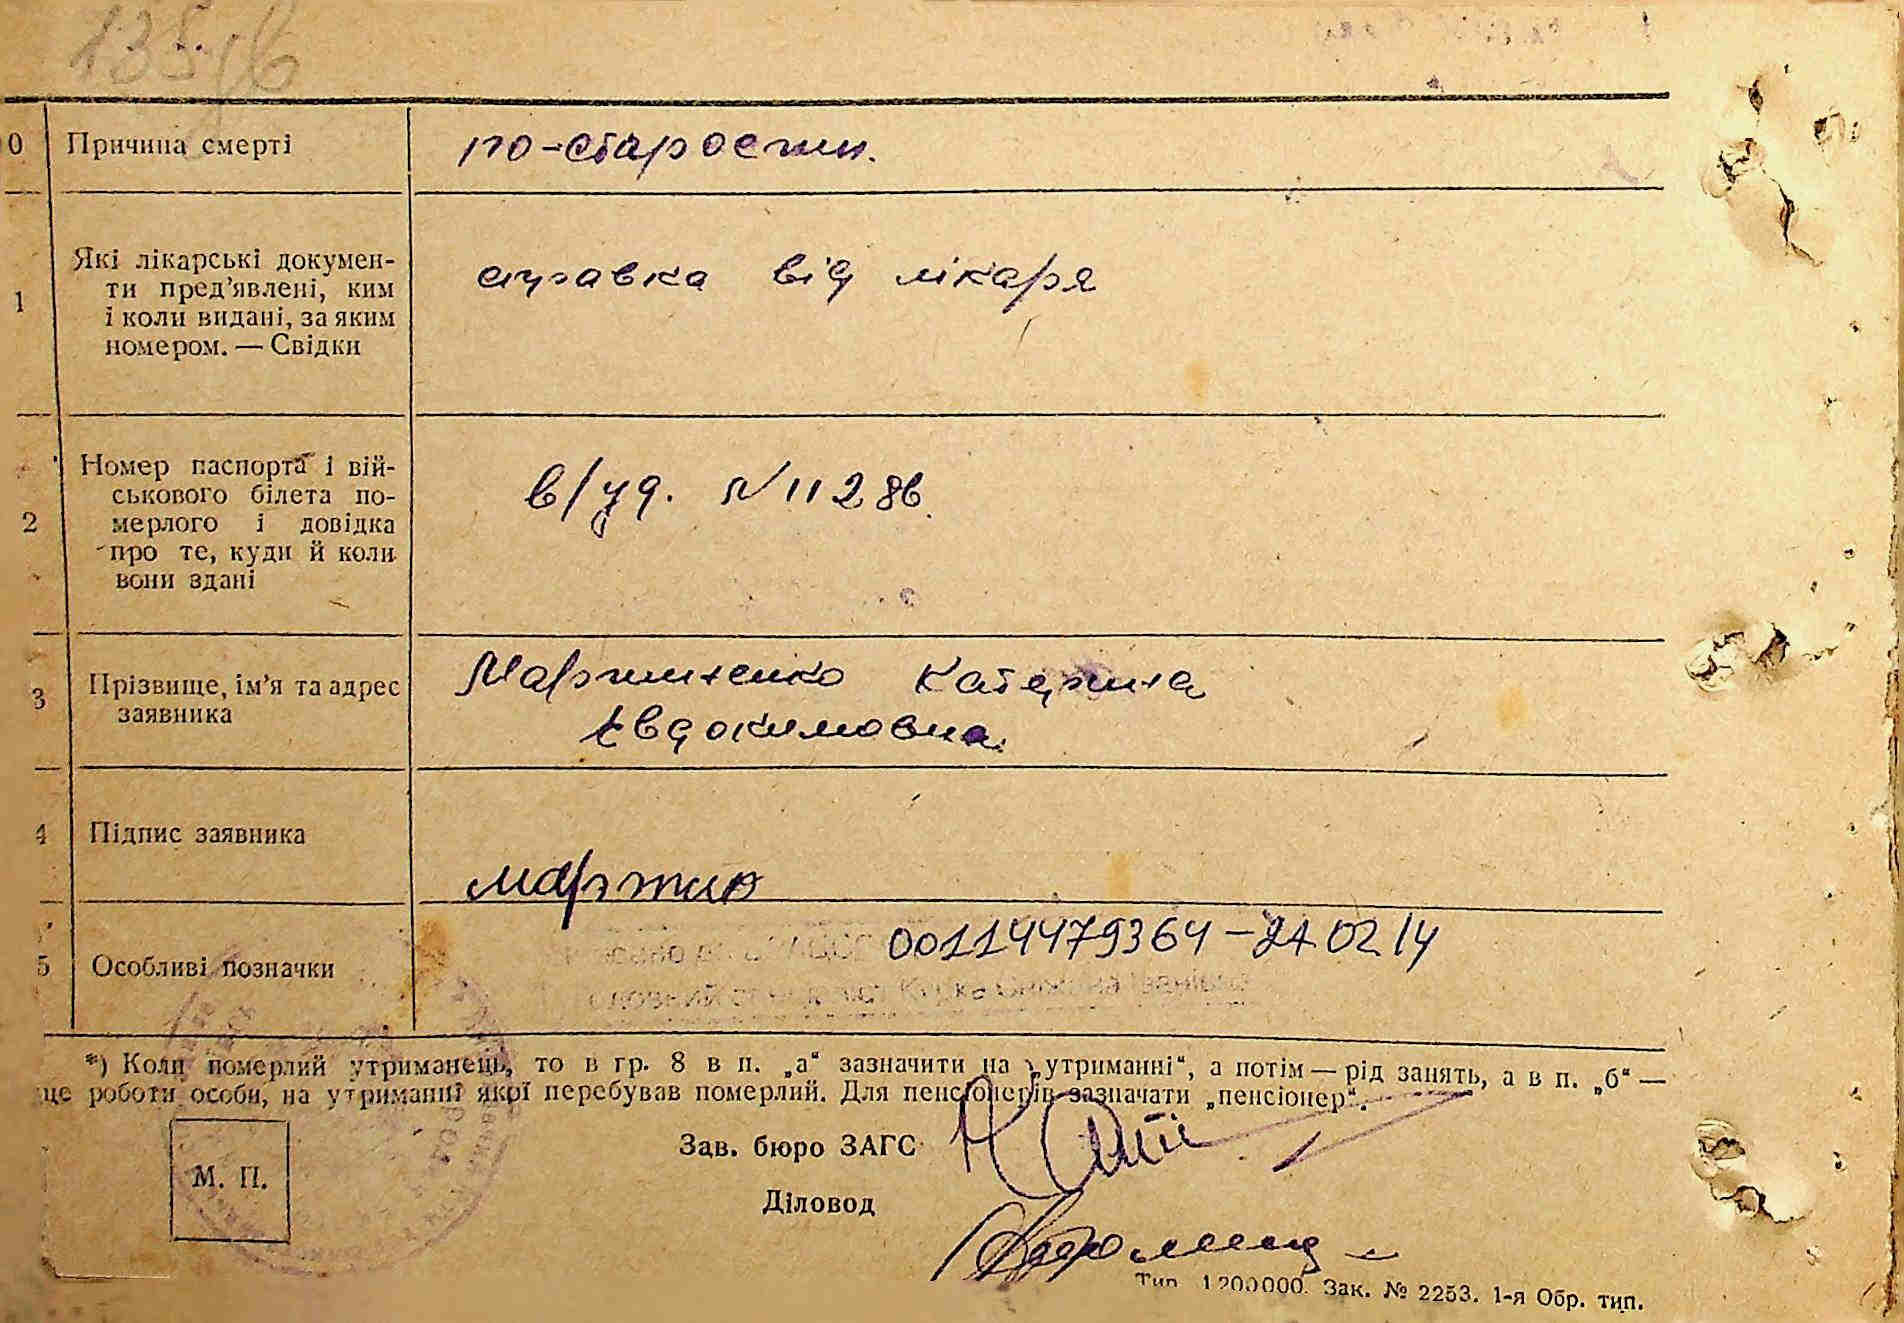 135/6
0 Причина смерті по-старости.
1 Які лікарські докумен-
ти пред'явлені, ким
і коли видані, за яким
номером. — Свідки
справка від лікаря
2 Номер паспорта і вій-
ськового білета по-
мерлого і довідка
про те, куди й коли
вони здані
в/уд. N 11286.
3 Прізвище, ім'я та адрес
заявника
Мартиненко Катерина
Евдокимовна.
4 Підпис заявника
мартин
5 Особливі позначки
00114479364 – 21 02 14
*) Коли померлий утриманець, то в гр. 8 в п. „а“ зазначити на „утриманні“, а потім — рід занять, а в п. „б“ —
це роботи особи, на утриманні якої перебував померлий. Для пенсіонерів зазначати „пенсіонер“.
М. П.
Зав. бюро ЗАГС
Діловод
Тип. 1200000. Зак. № 2253. 1-я Обр. тип.